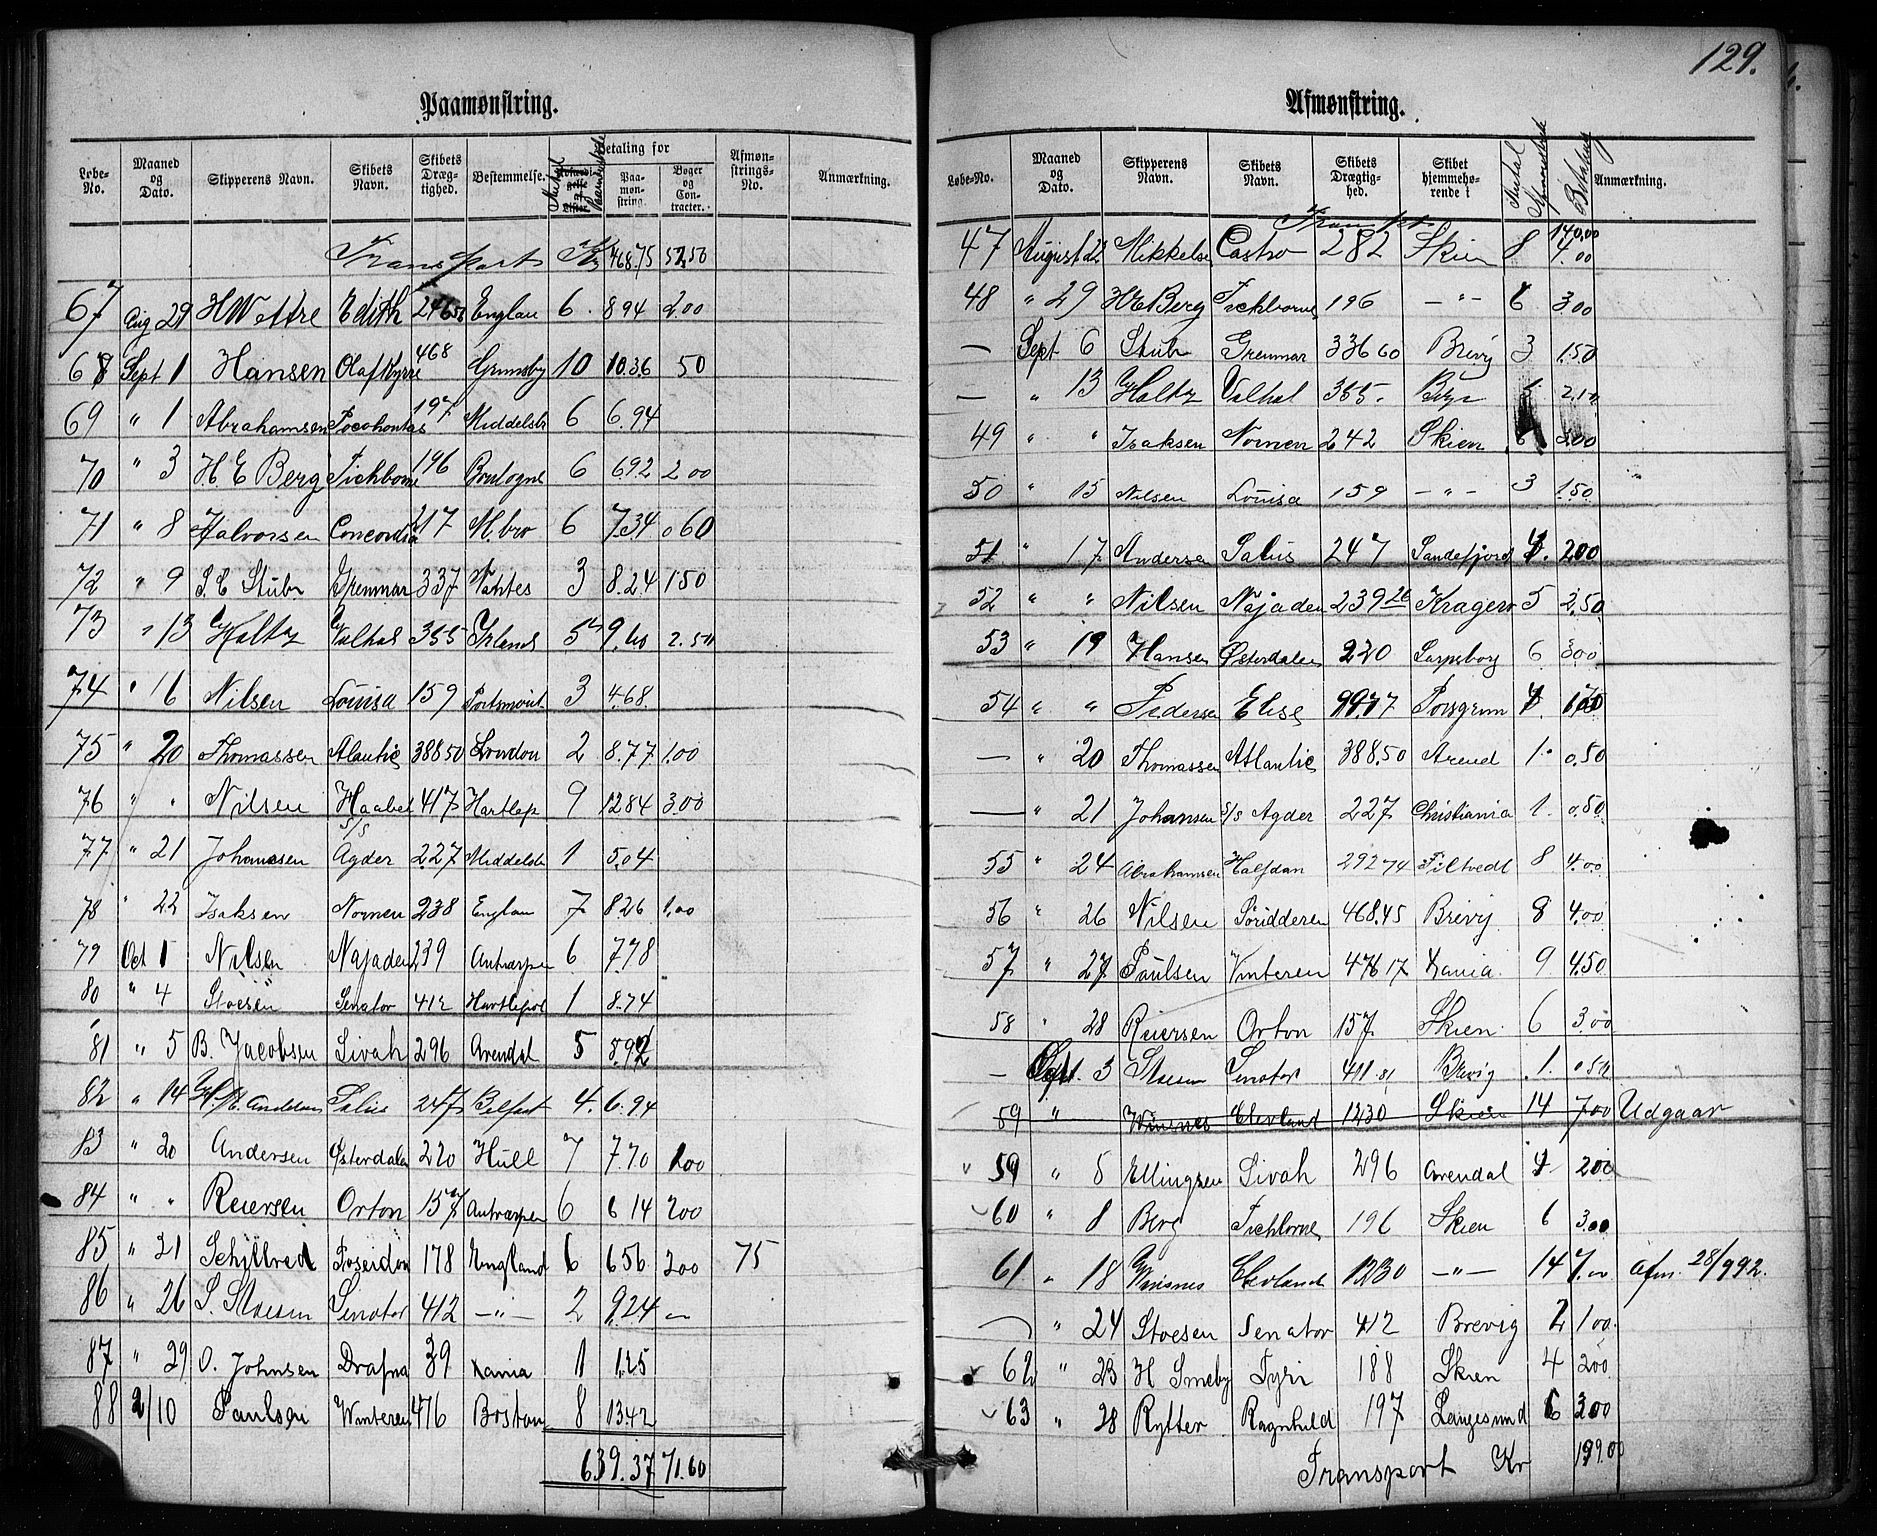 129.
Paamønstring.
Løbe-No. Maaned og Dato. Skipperens Navn. Skibets Navn. Skibets Drægtighed. Bestemmelse. Antal Paamønstrede Betaling for Paamønstring. Bøger og Contracter. Afmønstrings-No. Anmærkning.
Transport Kr 468.75 52.50
67 Aug 29 H Wettre Edith 246 Englan 6. 8 94 2.00
68 Sept 1 Hansen Olaf Kyrre 468 Grimsby 10 10.36 50
69 " 1 Abrahamsen Pocohontas 197 Middelsbr 6 6.94
70 " 3 H. E Berg Tichborne 196 Boulogne 6 6.92 2 00
71 " 8 Halvorsen Concordia 217 M.bro 6 7.34 0 60
72 " 9 S. E Stub Grenmar 337 Nantes 3 8.24 1 50
73 " 13 Holtz Valhal 355 Irland 5 9.40 2.50
74 " 16 Nilsen Louisa 159 Portsmout 3 4.68.
75 " 20 Thomassen Atlantic 388 50 London 2 8.77 1.00
76 " " Nilsen Haabet 417 Hartlep 9 12 84 3.00
77 " 21 Johannsen S/S Agder 227 Middelsb 1 5.04
78 " 22 Isaksen Nornen 238 Englan 7 8.26 1.00
79 Oct 1 Nilsen Najaden 239 Antwerpen 6 7.78
80 " 4 Stoesen Senator 412 Hartlepol 1 8.74
81 " 5 B. Jacobsen Sivah 296 Arendal 5 5.92
82 " 14 Andersen Salus 247 Belfast 4. 6.94
83 " 20 Andersen Østerdalen 220 Hull 7 7.70 1.00
84 " " Reiersen Orton 157 Antwerpen 6 6 14 2 00
85 " 21 Schjïlred Poseidon 178 England 6 6 56 2 00 75
86 " 26 S. Stoesen Senator 412 -"- 2 9.24 —
87 " 29 O. Johnsen Drafna 39 Xania 1 1.25
88 2/10 Paulsen Winteren 476 Boston 8 13 42
639.37 71.60
Afmønstring.
Løbe-No. Maaned og Dato. Skipperens Navn. Skibets Navn. Skibets Drægtighed. Skibet hjemmehørende i Antal Betaling Anmærkning.
Transport 140.00
47 August 22 Mikkelse Castro 282 Skien 8 4.00
48 " 29 H E Berg Tichborne 196 -"- 6 3.00
— Sept 6 Stub Grenmar 336 60 Brevig 3 1.50
— " 13 Holtz Valhal 355 2.10
49 " " Isaksen Nornen 242 Skien 6 3.00
50 " 15 Nilsen Louisa 159 -"- 3 1.50
51 " 17 Andersen Salus 247 Sandefjord 4. 2.00
52 " " Nilsen Najaden 239 26 Kragerø 5 2.50
53 " 19 Hansen Østerdalen 220 Sarpsborg 6 3.00
54 " " Pedersen Elise Porsgrun
— " 20 Thomassen Atlantic 388.50 Arend 1. 0.50
— " 21 Johansen S/s Agder 227 Christiania 1. 0.50
55 " 24 Abrahamsen Halfdan 292 74 Filtvedt 8 4.00
56 " 26 Nilsen Söridderen 468.45 Brevig 8 4.00
57 " 27 Paulsen Vinteren 476 17 Xania. 9 4.50
58 " 28 Reiersen Orton 157 Skien. 6 3.00
— Sept. 3 Stoesen Senator 411.81 Brevig .1. 0 50
59 " Winsnes Clevland 1230 Skien 14 7.00 Udgaar
59 " 5 Ellingsen Sivah 296 Arendal 4 2.00
60 " 8 Berg Tichborne 196 Skien 6 3.00
61 " 18 Winsnes Clevland 1230 -"- 14 7.00 Afm. 28/9 92.
" 24 Stoesen Senator 412 Brevig 2 1 00.
62 " 23 H Smeby Tyri 188 Skien 4 2 00
63 " 28 Rytter Ragnhild 197 Langesund 6 3 00
Transport Kr 199.00